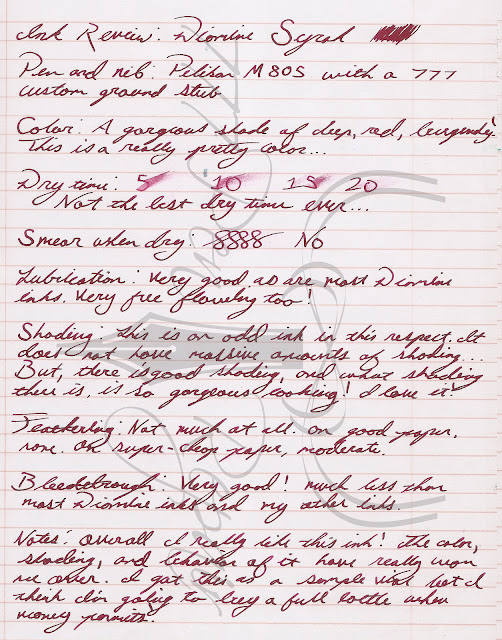 Ink Review: Diamine Syrah
Pen and nib: Pelikan M805 with a 777
custom ground stub
Color: A gorgeous shade of deep, red, burgundy.
This is a really pretty color...
Dry time: 5 10 15 20
Not the best dry time ever...
Smear when dry: 8888 No
Lubrication: Very good as are most Diamine
inks. Very free flowing too!
Shading: This is an odd ink in this respect. It
does not have massive amounts of shading...
But, there is good shading, and what shading
there is, is so gorgeous looking! I love it!
Feathering: Not much at all. On good paper,
none. On super-cheap paper, moderate.
Bleedthrough: Very good! Much less than
most Diamine inks and my other inks.
Notes: Overall I really like this ink! The color,
shading, and behavior of it have really won
me over. I got this as a sample vial but I
think I'm going to buy a full bottle when
money permits.